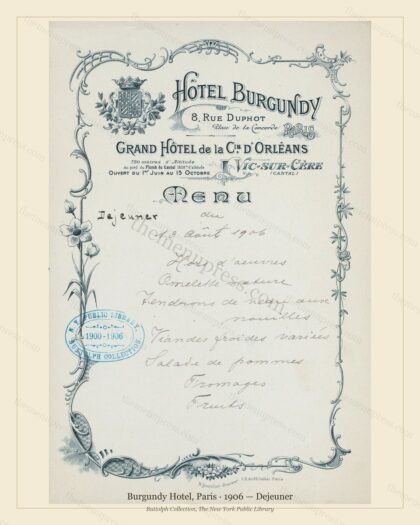 HÔTEL BURGUNDY
8, RUE DUPHOT
Place de la Concorde PARIS
GRAND HÔTEL de la Cie D'ORLÉANS
OUVERT DU 1er JUIN AU 15 OCTOBRE
VIC-SUR-CÈRE
(CANTAL)
MENU
Dejeuner du
12 Août 1906
Hors d'oeuvres
Omelette nature
Tendrons de veau aux
nouilles
Viandes froides variées
Salade de pommes
Fromages
Fruits
N. Y. PUBLIC LIBRARY
1900-1906
BUTTOLPH COLLECTION
Burgundy Hotel, Paris · 1906 — Dejeuner
Buttolph Collection, The New York Public Library
themenupress.com